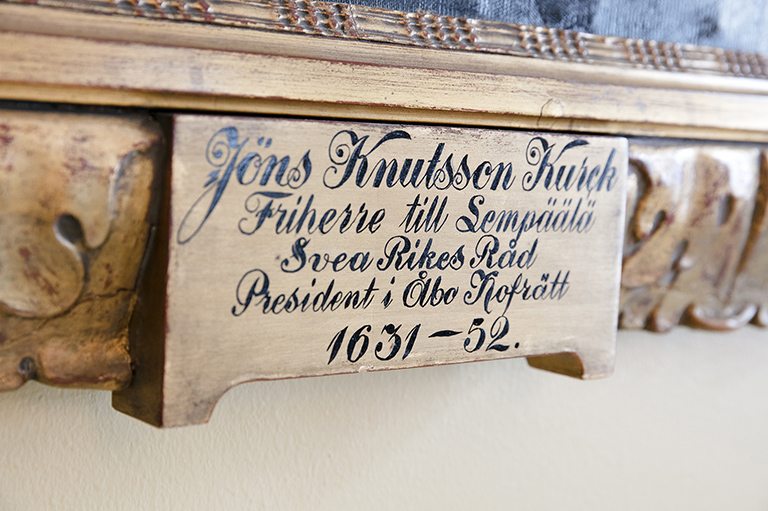 Jöns Knutsson Kurck
Friherre till Lempäälä
Svea Rikes Råd
President i Åbo Hofrätt
1631-52.